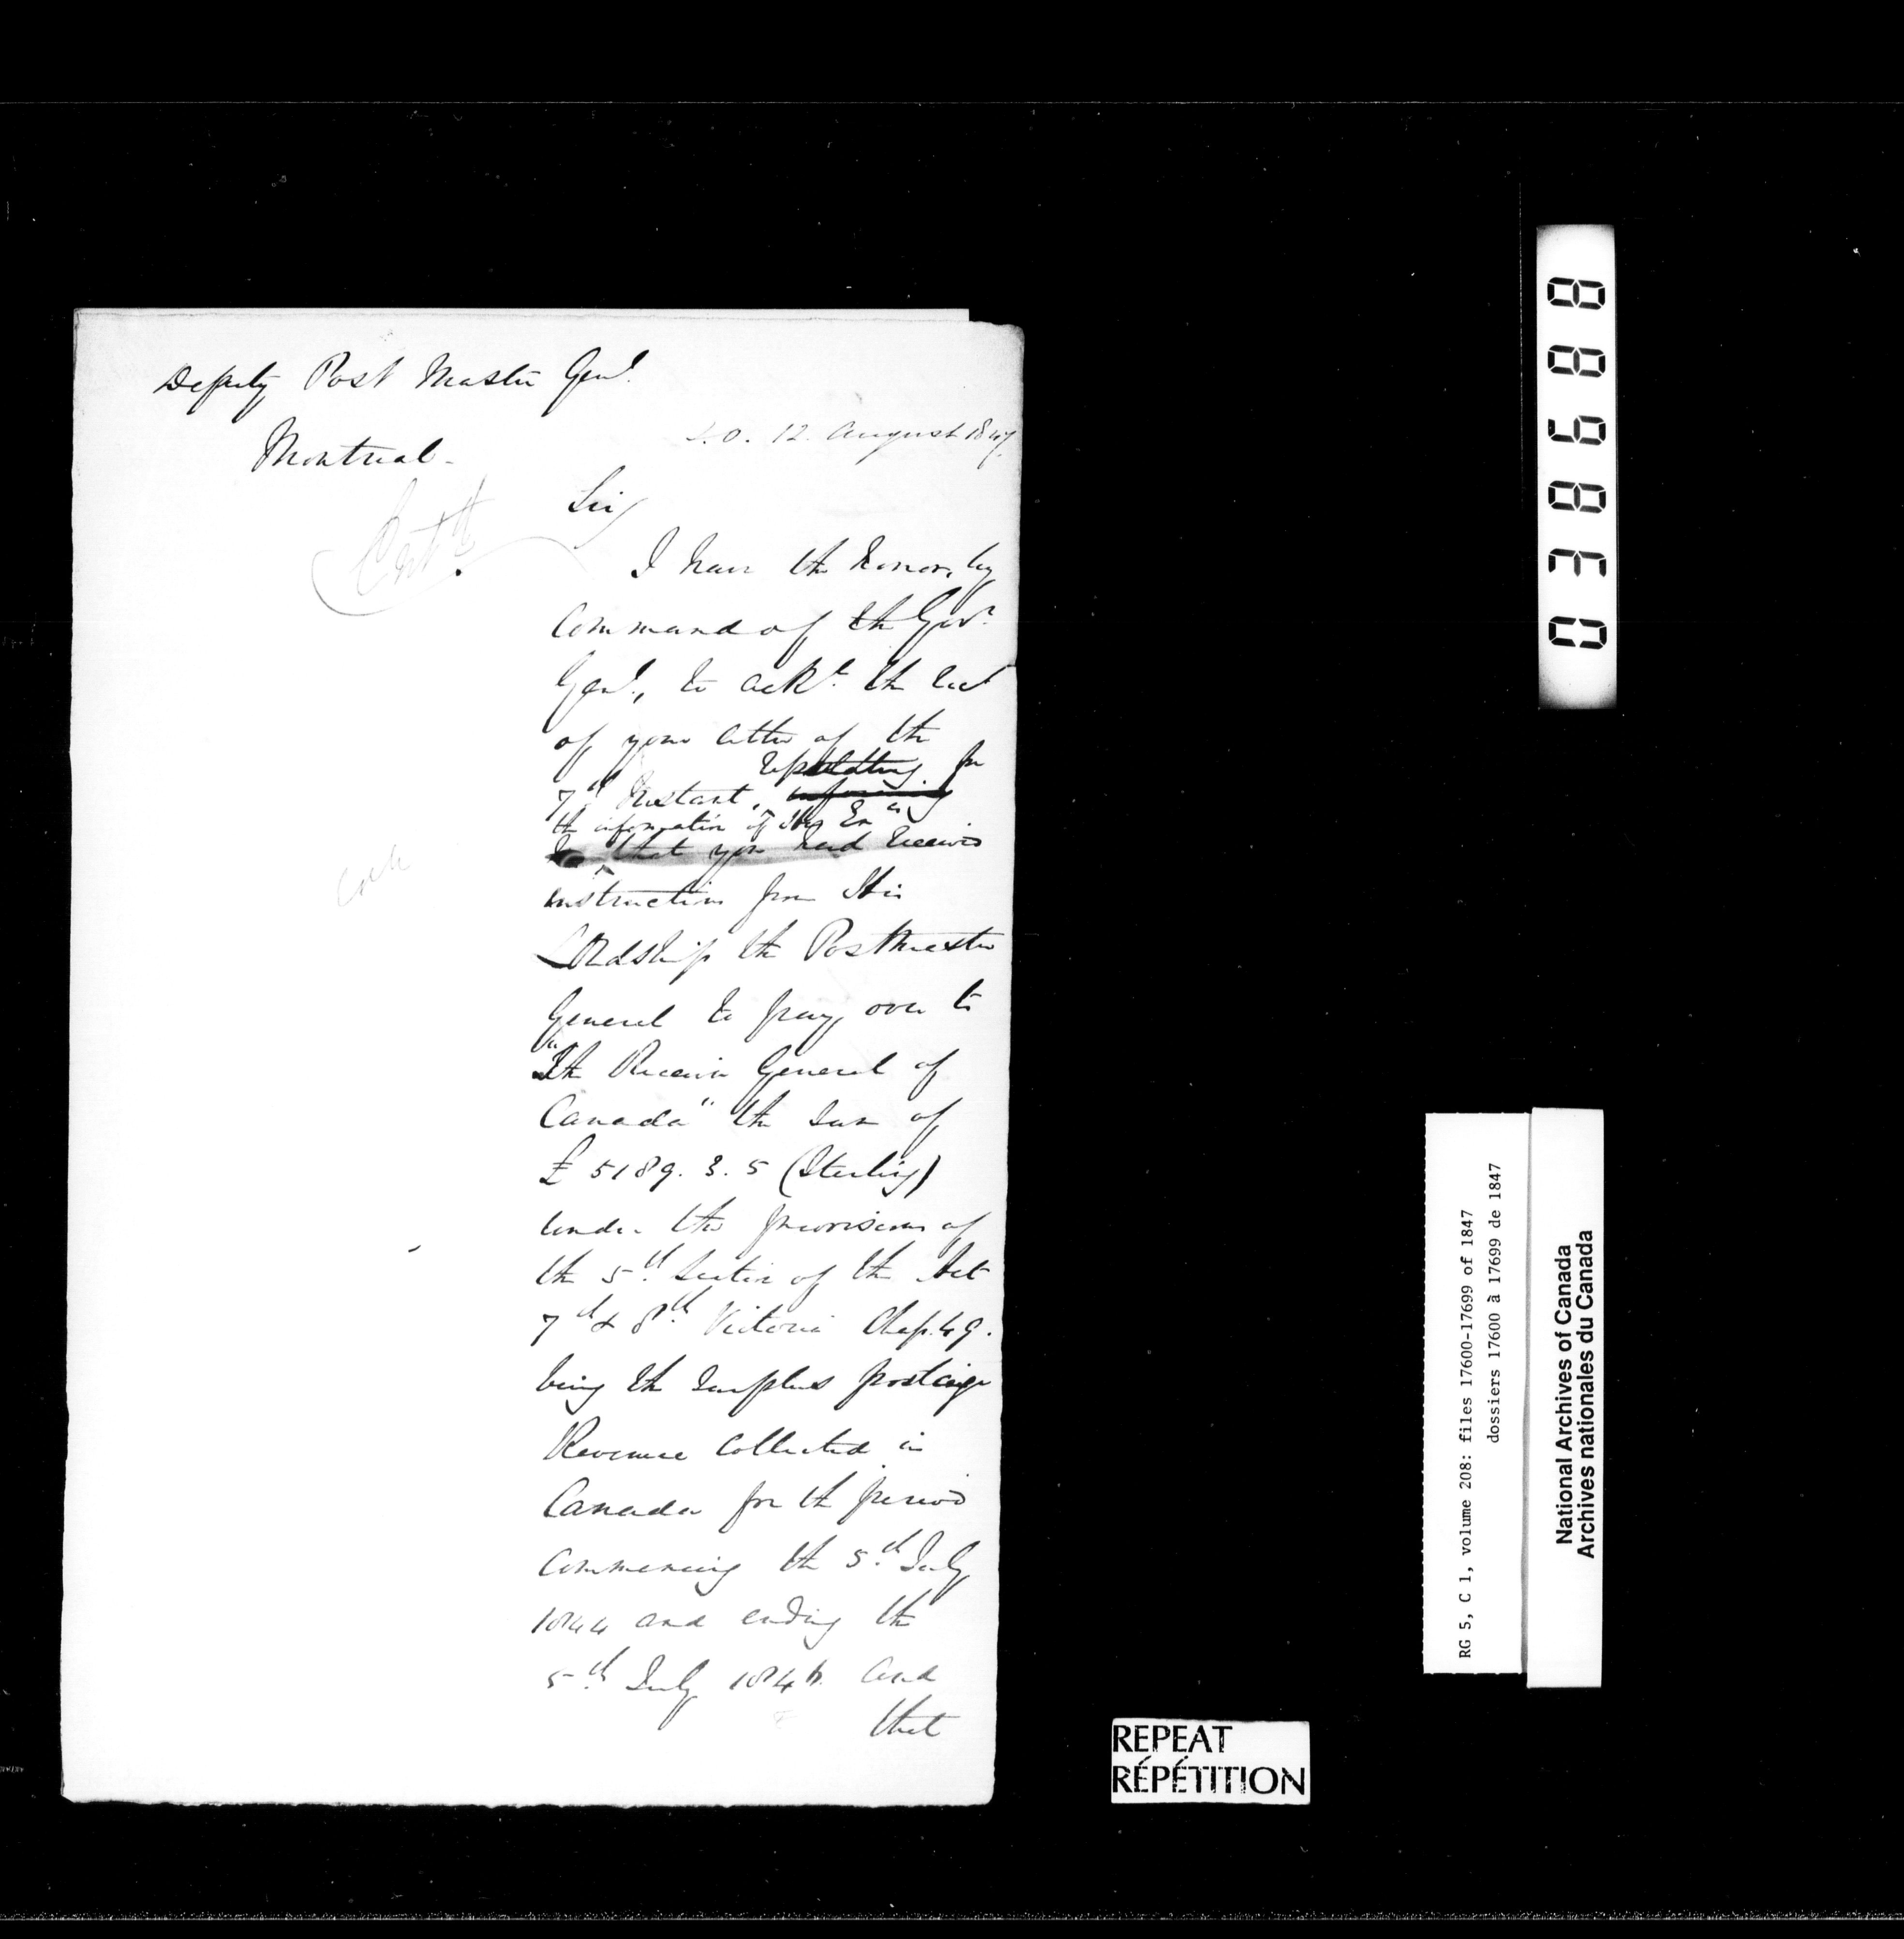 Deputy Post Master Genl.
S.O. 12. August 1847.
Montreal-
Entd.
Sir/
I have the honor, by
Command of the Govr.
Genl., to ackn. the rect
of your letter of the
for
7th Instant, informing
the information of His Exy
that you had received
instructions from His
Lordship the Postmaster
General to pay over to
"The Receiver General of
Canada" the sum of
£ 5189. 3. 5 (Sterling)
under the provisions of
the 5th. Section of the Act
7th & 8th. Victoria Chap. 49.
being the surplus postage
Revenue collected in
Canada for the period
commencing the 5th. July
1844 and ending the
5th. July 1846. and
that
038688
RG 5, C 1, volume 208: files 17600-17699 of 1847
dossiers 17600 à 17699 de 1847
National Archives of Canada
Archives nationales du Canada
REPEAT
RÉPÉTITION